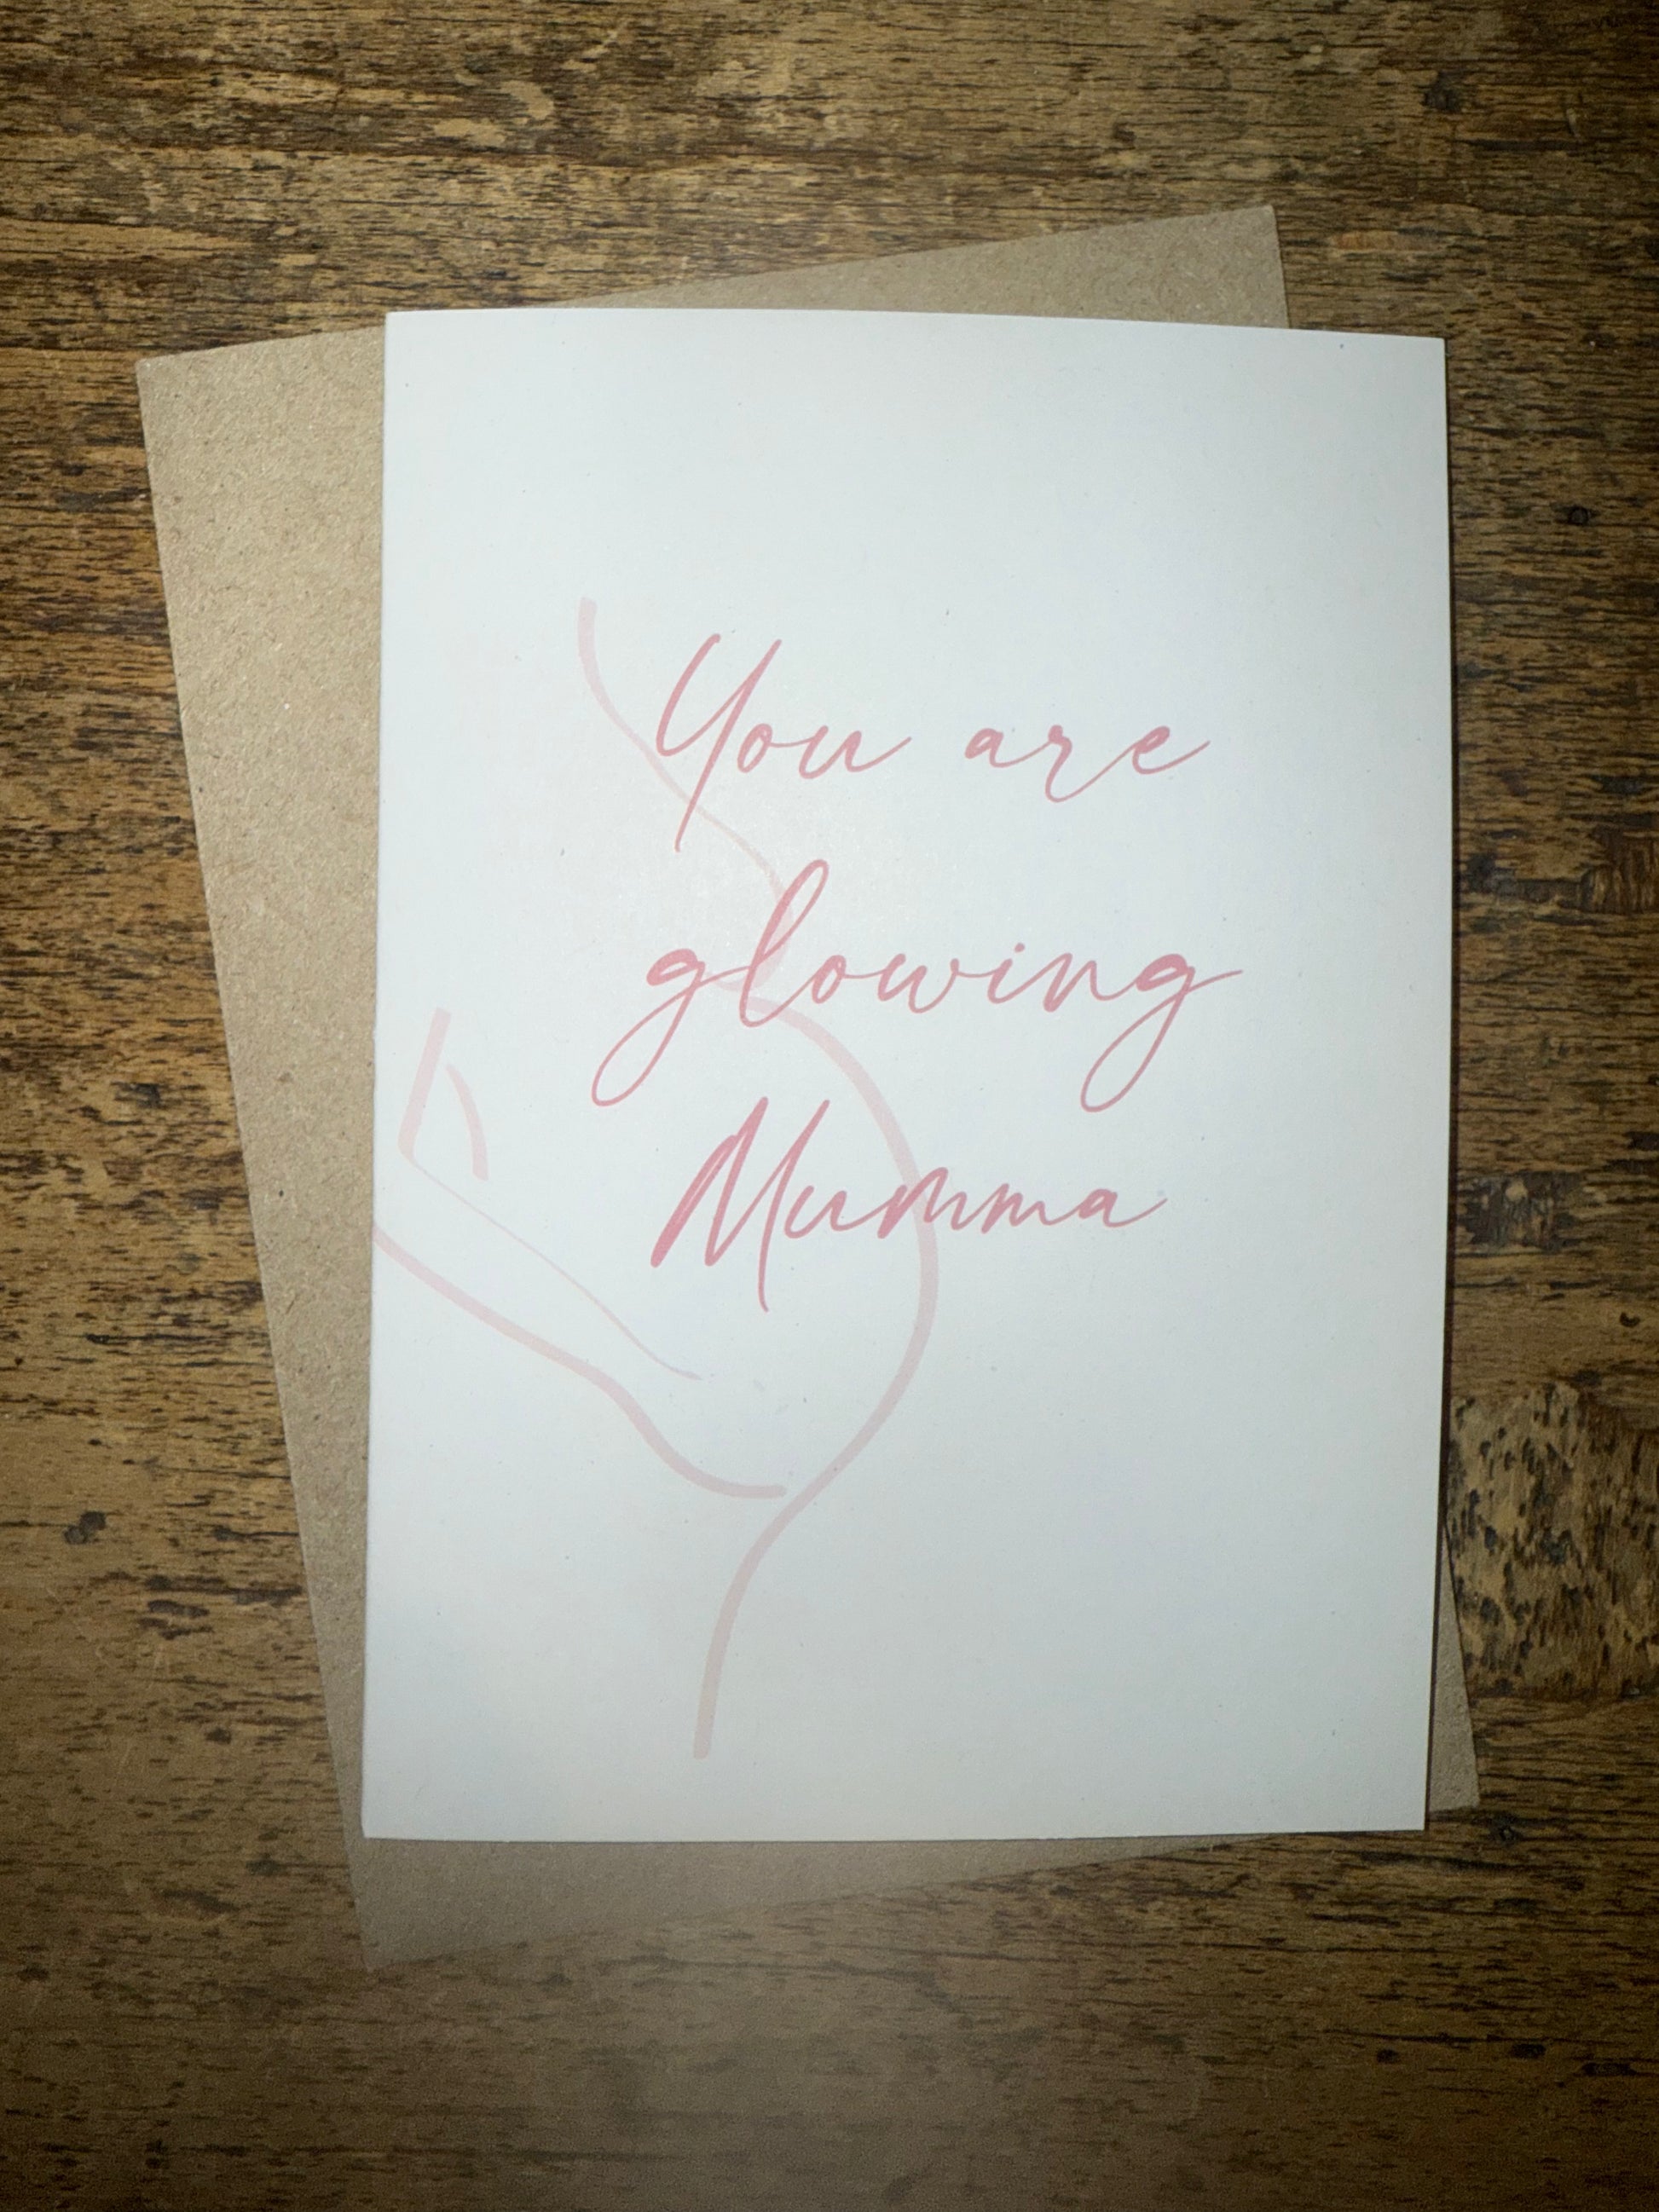 You are
glowing
Mumma